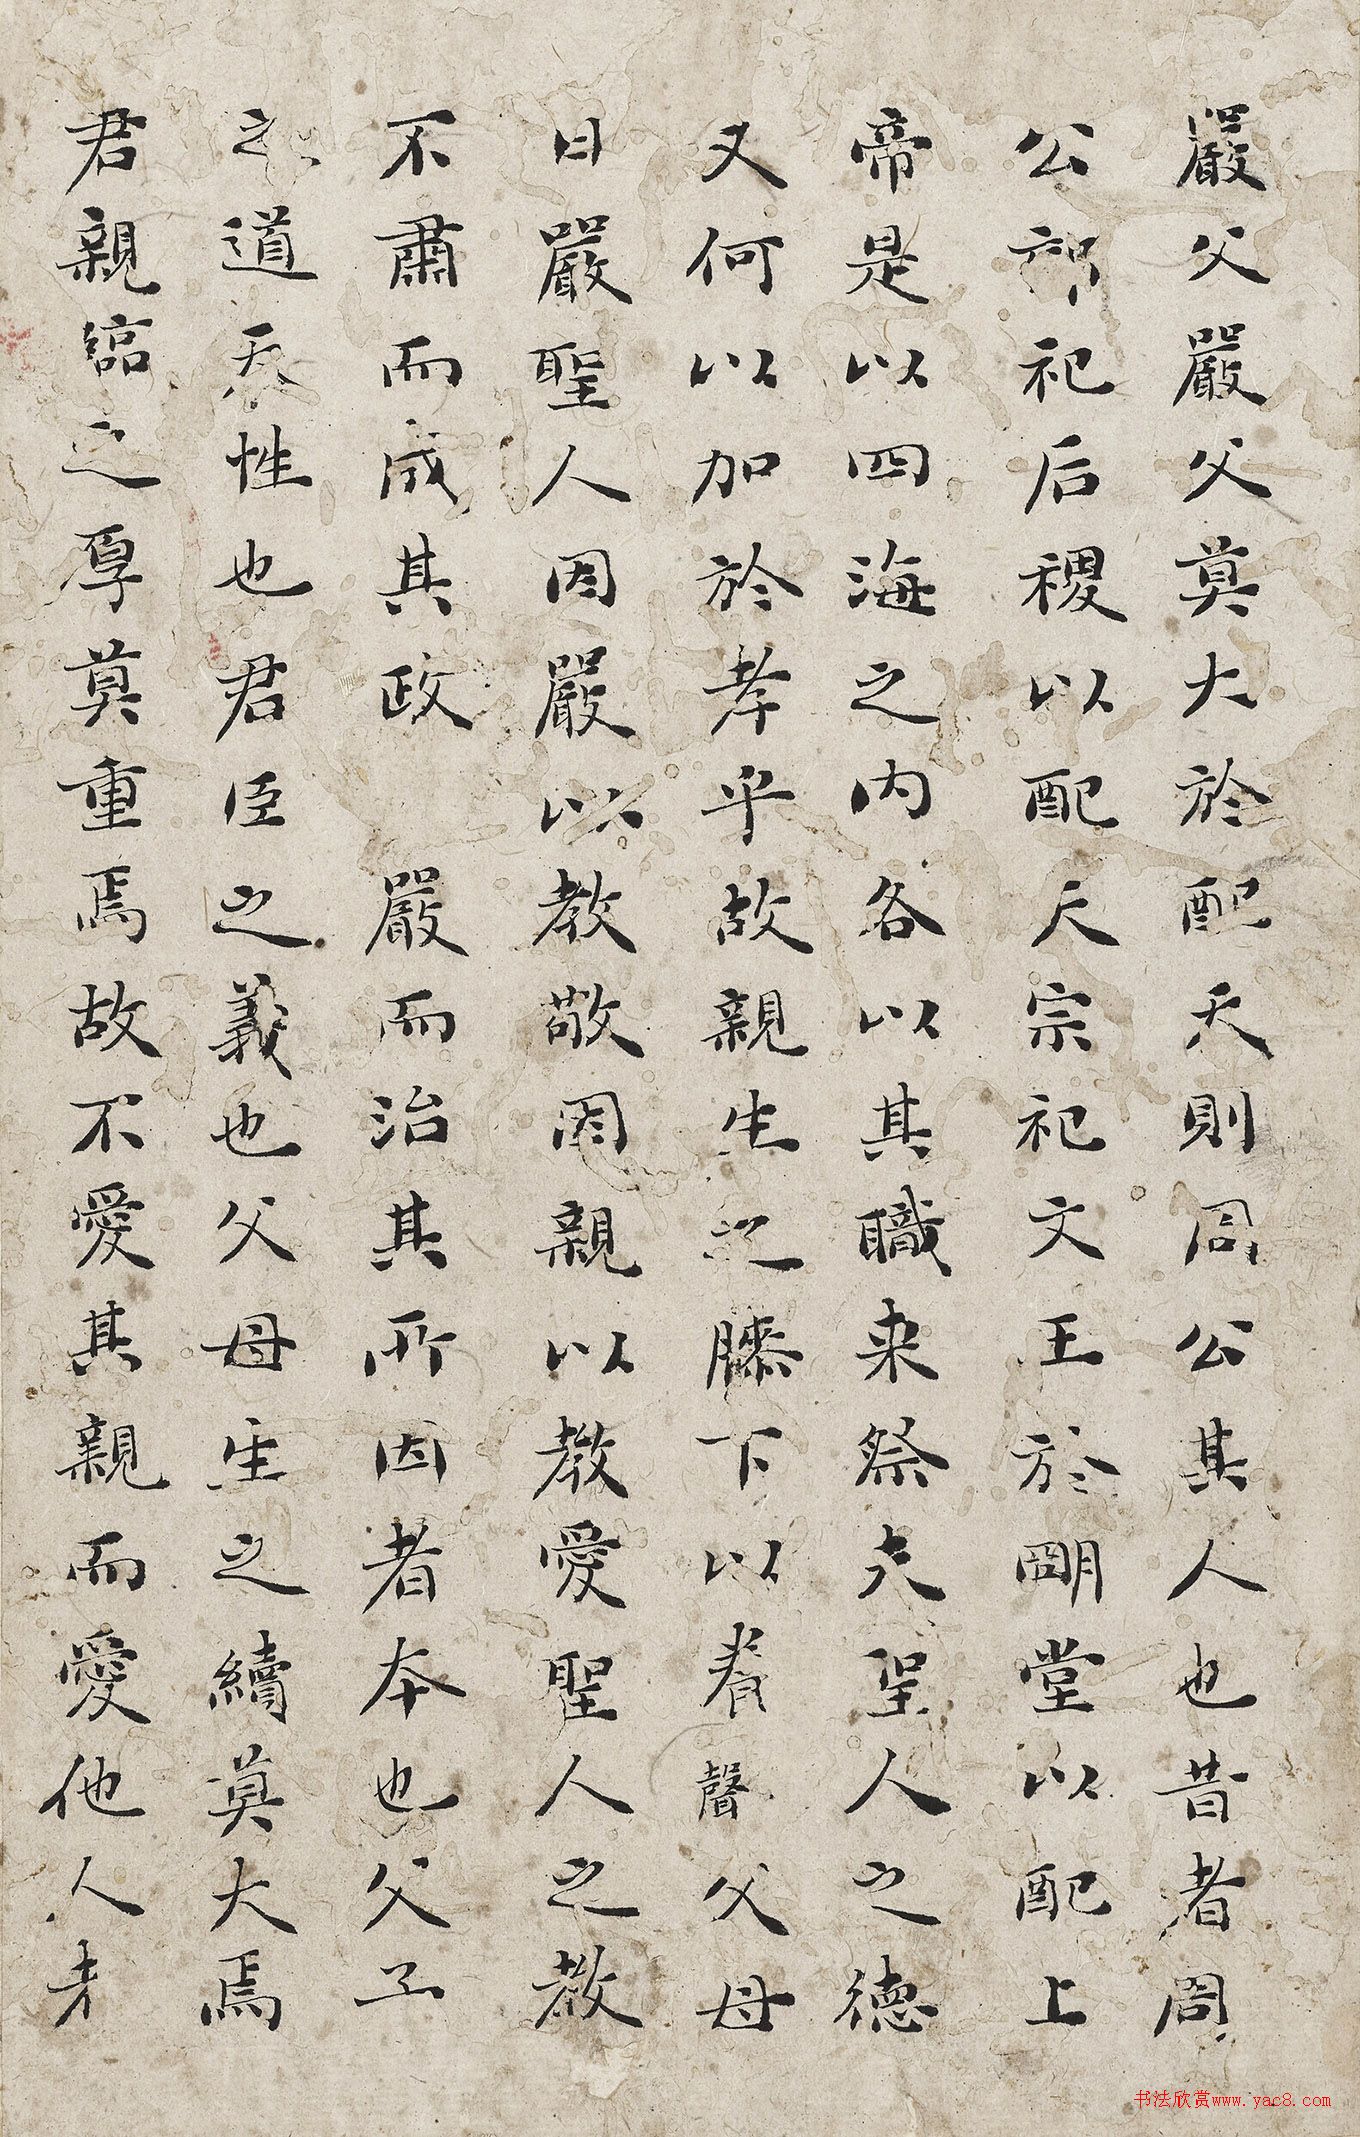 嚴父嚴父莫大於配天則周公其人也昔者周
公郊祀后稷以配天宗祀文王於朙堂以配上
帝是以四海之内各以其職来祭夫聖人之德
又何以加於孝乎故親生之膝下以養父母
日嚴聖人因嚴以教敬因親以教愛聖人之教
不肅而成其政 嚴而治其所因者本也父子
之道天性也君臣之義也父母生之續莫大焉
君親臨之厚莫重焉故不愛其親而愛他人者
书法欣赏www.yac8.com